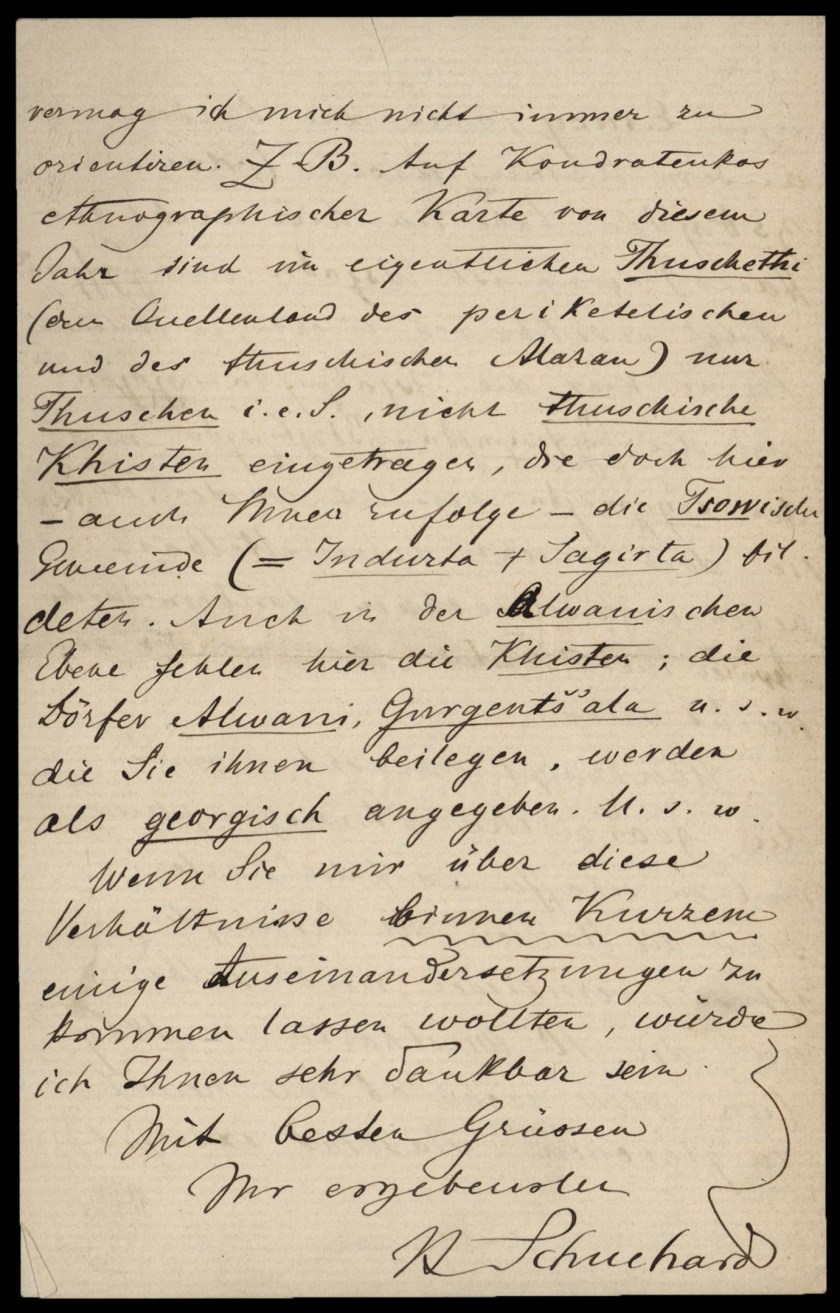 vermag ich mich nicht immer zu
orientiren. Z. B. Auf Kondratenkos
ethnographischer Karte von diesem
Jahr sind im eigentlichen Thuschethi
(dem Quellenland des perikitelischen
und des thuschischen Alazan) nur
Thuschen i. e. S., nicht thuschische
Khisten eingetragen, die doch hier
– auch Ihnen zufolge – die Tsowische
Gemeinde (= Indurta + Sagirta) bil-
deten. Auch in der Alwanischen
Ebene fehlen hier die Khisten; die
Dörfer Alwani, Gurgentš'ala u. s. w.
die Sie ihnen beilegen, werden
als georgisch angegeben. U. s. w.
Wenn Sie mir über diese
Verhältnisse binnen Kurzem
einige Auseinandersetzungen zu
kommen lassen wollten, würde
ich Ihnen sehr dankbar sein.
Mit besten Grüssen
Ihr ergebenster
H Schuchardt